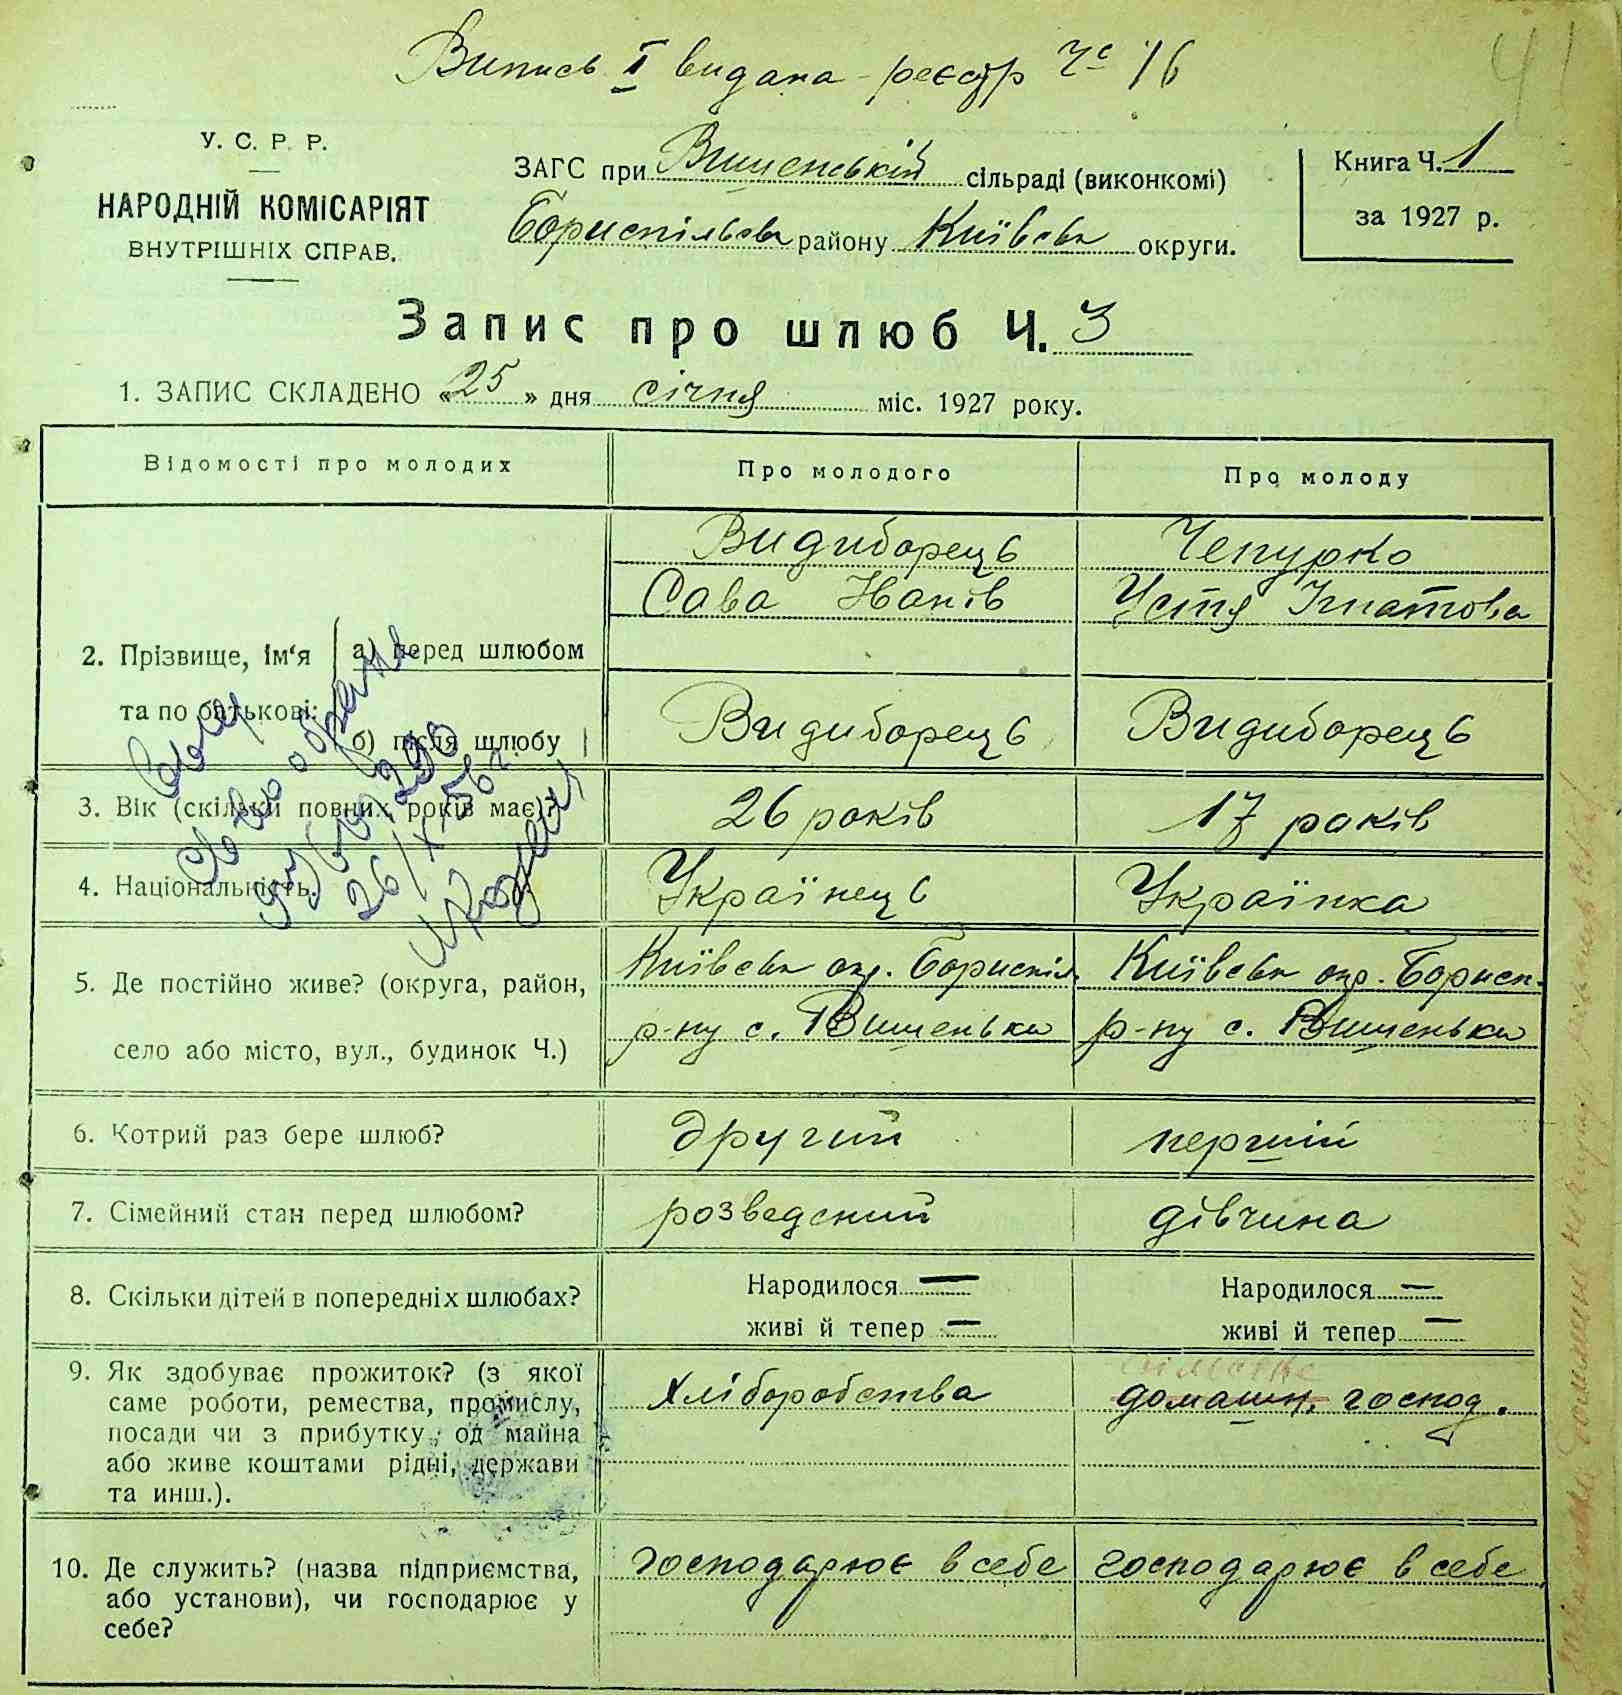 Випись I видана - реєстр Ч 16
41
У. С. Р. Р.
НАРОДНІЙ КОМІСАРІЯТ
ВНУТРІШНІХ СПРАВ.
ЗАГС при Вишенській сільраді (виконкомі)
Бориспільськ району Київськ округи.
Книга Ч. 1
за 1927 р.
Запис про шлюб Ч. 3
1. ЗАПИС СКЛАДЕНО «25» дня січня міс. 1927 року.
Відомості про молодих
Про молодого
Про молоду
2. Прізвище, ім'я та по батькові:
а) перед шлюбом
Видиборець
Сава Іванів
Чепурко
Устя Ігнатова
б) після шлюбу
Видиборець
Видиборець
3. Вік (скільки повних років має)?
26 років
17 років
4. Національність.
Українець
Українка
5. Де постійно живе? (округа, район,
село або місто, вул., будинок Ч.)
Київськ окр. Бориспіл.
р-ну с. Вишеньки
Київськ окр. Борисп.
р-ну с. Вишеньки
6. Котрий раз бере шлюб?
другий
перший
7. Сімейний стан перед шлюбом?
розведений
дівчина
8. Скільки дітей в попередніх шлюбах?
Народилося —
живі й тепер —
Народилося —
живі й тепер —
9. Як здобуває прожиток? (з якої
саме роботи, ремества, промислу,
посади чи з прибутку, од майна
або живе коштами рідні, держави
та инш.).
Хліборобства
домашн. господ.
10. Де служить? (назва підприємства,
або установи), чи господарює у
себе?
господарює в себе
господарює в себе
26/X-56 г.